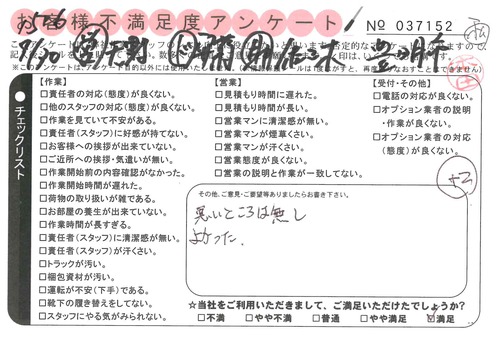 お客様不満足度アンケート
№ 037152
チェックリスト
【作業】
□責任者の対応(態度)が良くない。
□他のスタッフの対応(態度)が良くない。
□作業を見ていて不安がある。
□責任者(スタッフ)に好感が持てない。
□お客様への挨拶が出来ていない。
□ご近所への挨拶・気遣いが無い。
□作業開始前の内容確認がなかった。
□作業開始時間が遅れた。
□荷物の取り扱いが雑である。
□お部屋の養生が出来ていない。
□作業時間が長すぎる。
□責任者(スタッフ)に清潔感が無い。
□責任者(スタッフ)が汗くさい。
□トラックが汚い。
□梱包資材が汚い。
□運転が不安(下手)である。
□靴下の履き替えをしてない。
□スタッフにやる気がみられない。
【営業】
□見積もり時間に遅れた。
□見積もり時間が長い。
□営業マンに清潔感が無い。
□営業マンが煙草くさい。
□営業マンが汗くさい。
□営業態度が良くない。
□営業の説明と作業が一致してない。
【受付・その他】
□電話の対応が良くない。
□オプション業者の説明
・作業が良くない。
□オプション業者の対応
(態度)が良くない。
その他、ご意見・ご要望等ありましたらお書き下さい。
悪いところは無し
よかった。
☆当社をご利用いただきまして、ご満足いただけたでしょうか?
□不満 □やや不満 □普通 □やや満足 ☑満足